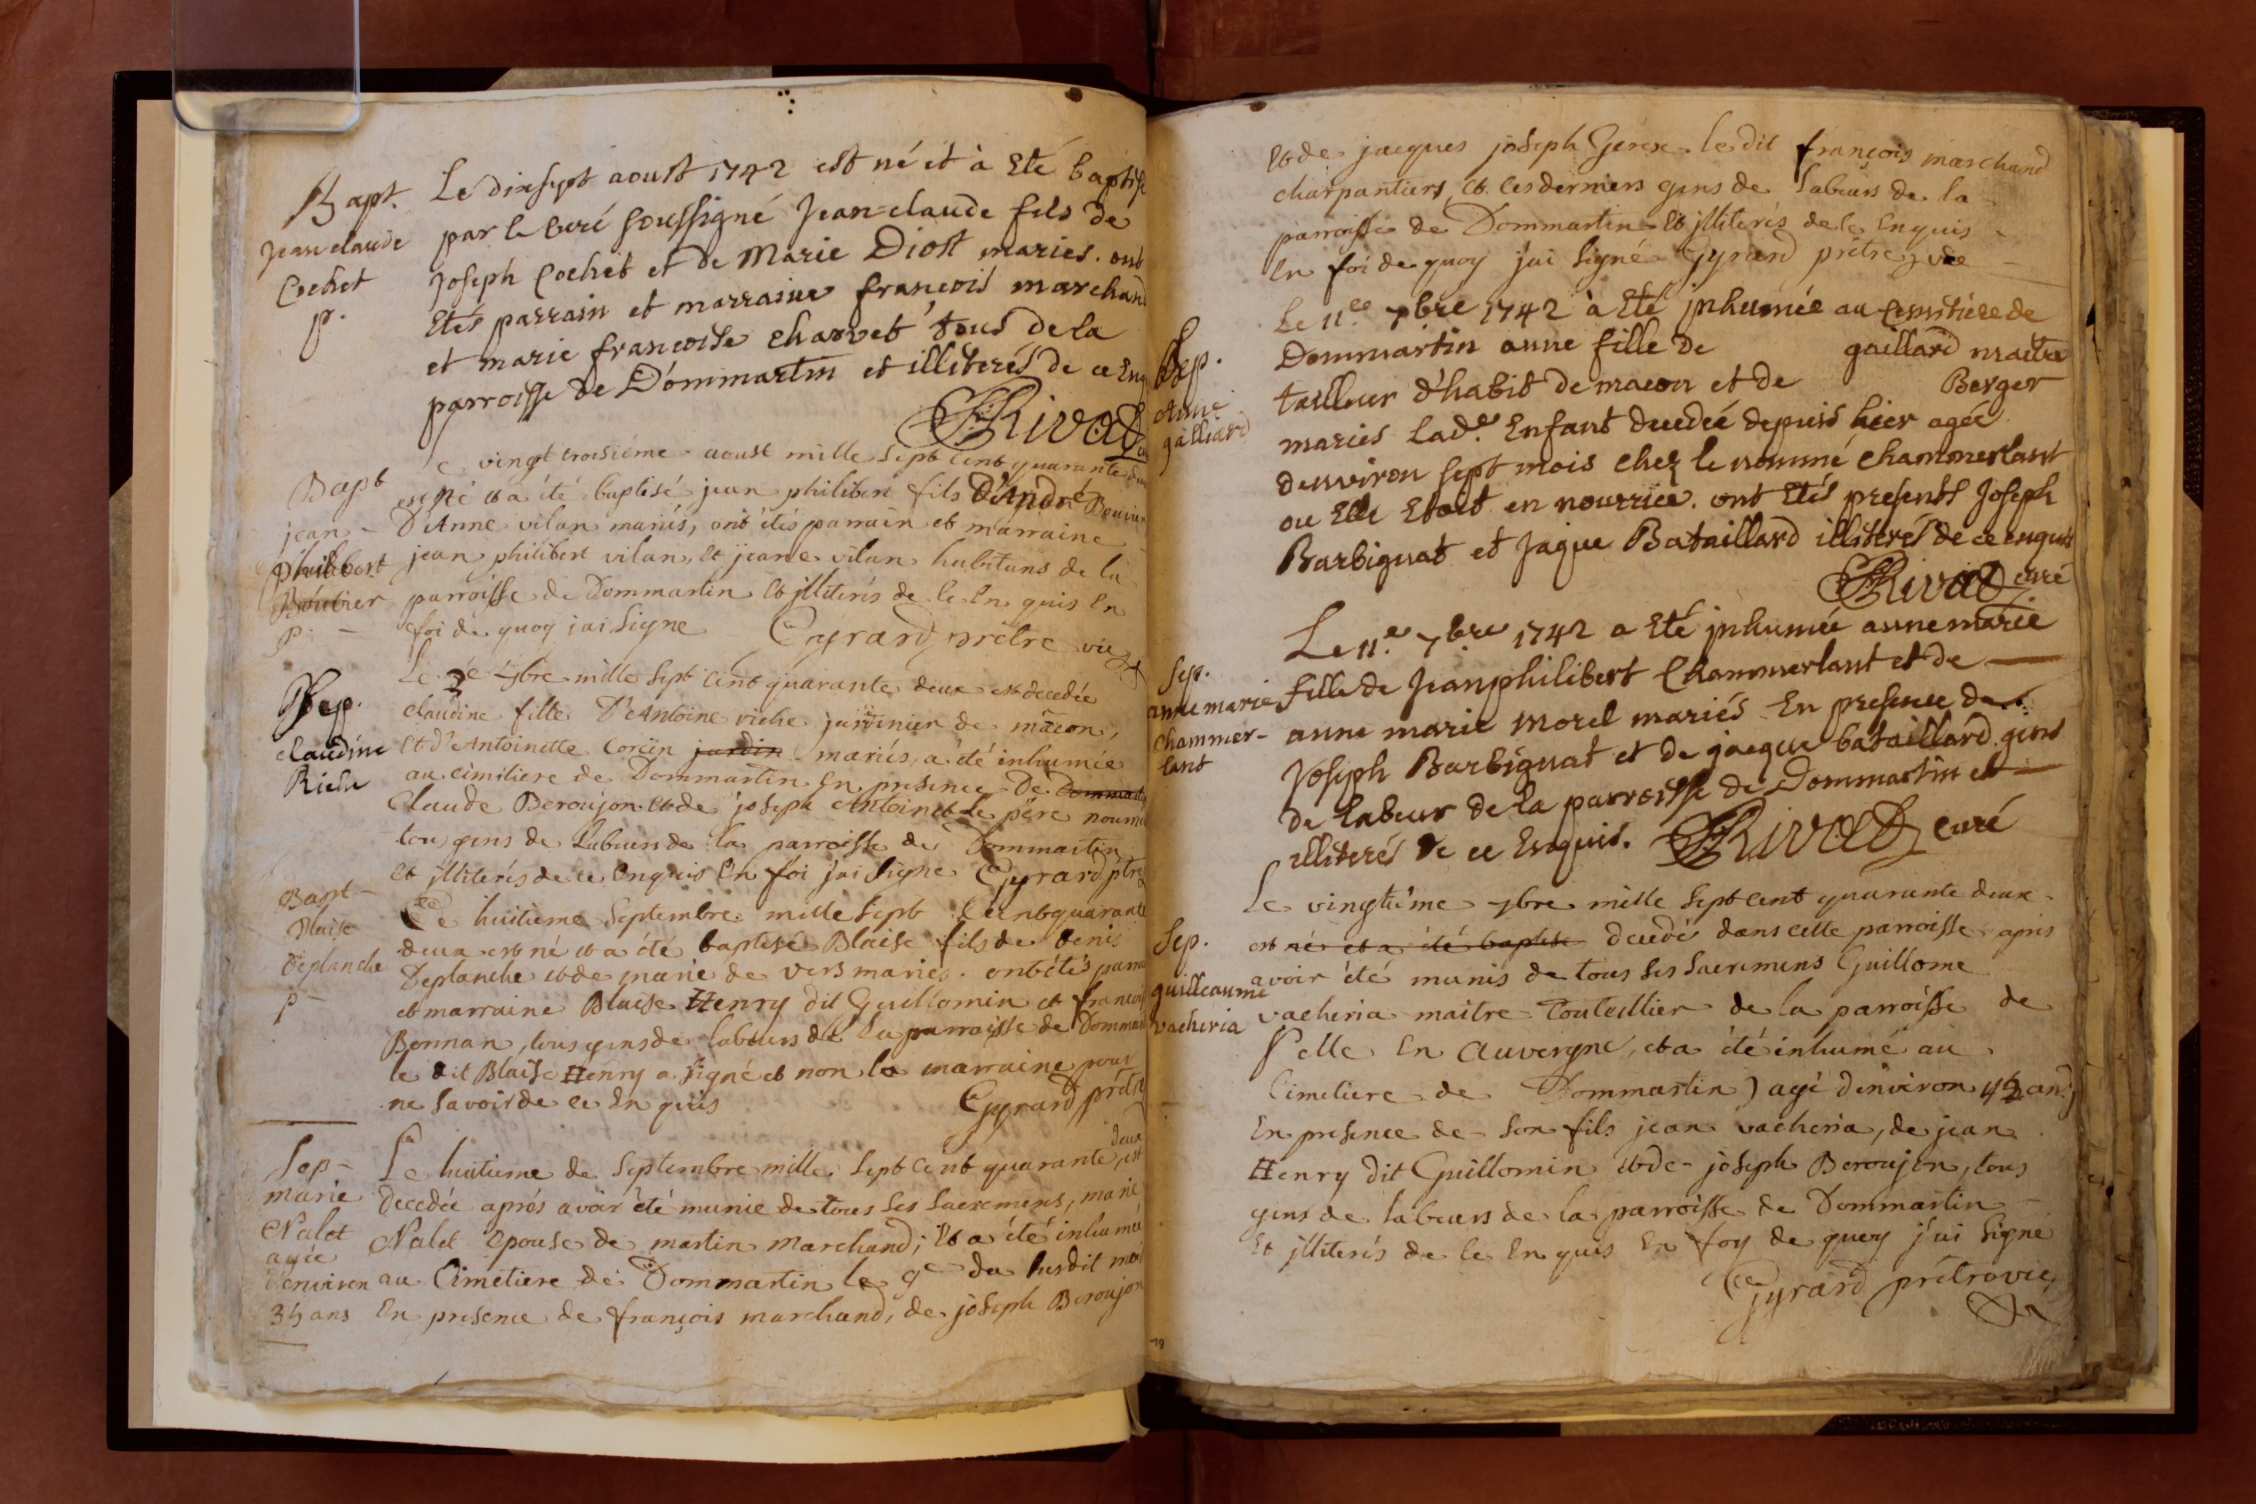 Bapt.
Jean claude
Cochet
p.
Le dixsept aoust 1742 est né et à Eté baptisé
par le Curé soussigné Jean=claude fils de
Joseph Cochet et de Marie Diost mariés. ont
Etés parrain et marraine françois marchand
et marie françoise charvet tous de la
parroisse de Dommartin et illiterés de ce Enq
Rivat
Bapt
jean -
philibert
Boutier
p. -
Le vingt troisiéme aoust mille sept cent quarante deux
est né et a été baptisé jean philibert fils D'André
D'Anne vilan mariés, ont étés parrain et marraine
jean philibert vilan, et jeane vilan habitans de la
parroisse de Dommartin et jlliterés de ce En quis En
foi de quoy j'ai signe Gyrard prêtre vic
Sep.
claudine
Riche
Le 3e 7bre mille sept cent quarante deux est decedée
claudine fille D'Antoine riche jardinier de mâcon,
et d'Antoinette jardin mariés, a été inhumée
au cimitiere de Dommartin En presence De
Claude Beroujon et de joseph Antoine le père nouri
tous gens de Labeurs de la parroisse de Dommartin
et jlliterés de ce Enquis En foi j'ai signe Gyrard ptre
Bapt -
Blaise
Deplanche
p -
Le huitieme Septembre mille sept Cent quarante
deux est né et a été baptisé Blaise fils de Denis
Deplanche et de marie de vers mariés. ont étés parra
et marraine Blaise Henry dit Guillomin et françoi
Bonnan, tous gens de labeurs de la parroisse de Dommar
le dit Blaise Henry a signé et non la marraine pour
ne savoir de ce En quis Gyrard prêtre
Sep -
marie
Nalet
agée
d'environ
35 ans
Le huitieme de Septembre mille sept Cent quarante deux, est
decedée aprés avoir été munie de tous ses sacremens, marie
Nalet Epouse de martin marchand; et a été inhumée
au Cimetiere de Dommartin le 9e du susdit moi
En presence de françois marchand, de joseph Beroujon
et de jacques joseph Gerex. le dit françois marchand
charpantiers, et ces derniers gens de Labeurs de la
parroisse de Dommartin et jlliterés de ce Enquis
En foi de quoy j'ai signé Gyrard prêtre vic
Sep.
Anne
galliard
Le 11.e 7bre 1742 à Eté jnhumée au Cemitiére de
Dommartin anne fille de gaillard maître
tailleur d'habit de macon et de Berger
mariés lad.e Enfant decedeé depuis hier agée
denviron sept mois chez le nommé chammerlant
ou Elle Etoit en nourrice. ont Etés presents Joseph
Barbignat et Jaque Bataillard illiterés de ce enquis
Rivat curé
Sep.
anne marie
Chammer-
lant
Le 11.e 7bre 1742 a Eté jnhumée anne marie
fille de Jean philibert Chammerlant et de
anne marie morel mariés En presence de
Joseph Barbignat et de jacque bataillard gens
de labeur de la parroisse de Dommartin et
illiterés de ce Enquis. Rivat Curé
Sep.
guilleaume
vacheria
Le vingtiême 7bre mille sept cent quarante deux
est né et a été baptisé decedé dans cette parroisse aprés
avoir été munis de tous ses Sacremens Guillome
vacheria maitre Coutellier de la parroisse de
elle En Auvergne, et a été inhumé au
Cimetiere de Dommartin) agé d'environ 42 ans)
En presence de son fils jean vacheria, de jean
Henry dit Guillomin et de joseph Beroujon, tous
gens de labeurs de la parroisse de Dommartin
et jlliterés de ce En quis En foy de quoy j'ai signé
Gyrard prêtre vic